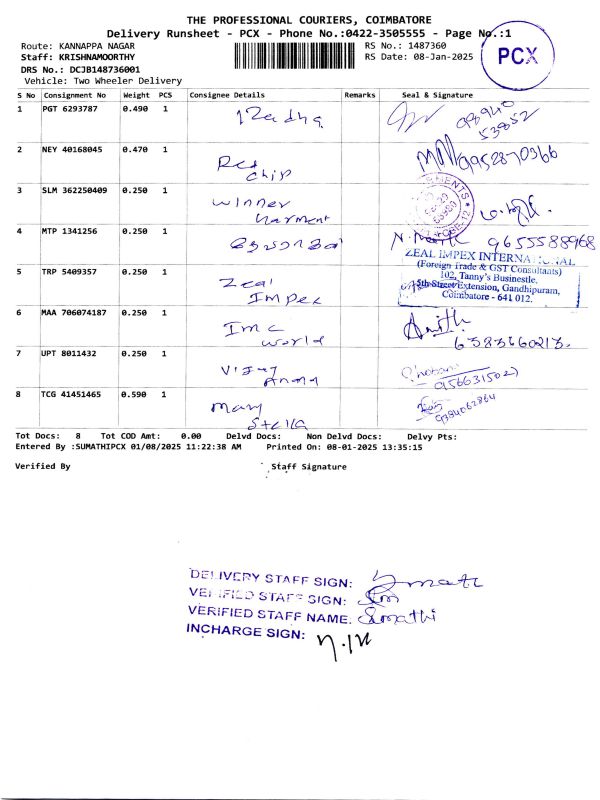 THE PROFESSIONAL COURIERS, COIMBATORE
Delivery Runsheet - PCX - Phone No.:0422-3505555 - Page No.:1
PCX
Route: KANNAPPA NAGAR
RS No.: 1487360
Staff: KRISHNAMOORTHY
RS Date: 08-Jan-2025
DRS No.: DCJB148736001
Vehicle: Two Wheeler Delivery
S No Consignment No Weight PCS Consignee Details Remarks Seal & Signature
1 PGT 6293787 0.490 1
98940
53852
2 NEY 40168045 0.470 1 Red
chip
9952870366
3 SLM 362250409 0.250 1 Winner
4 MTP 1341256 0.250 1
9655588968
5 TRP 5409357 0.250 1 Zeal
Impex
ZEAL IMPEX INTERNATIONAL
(Foreign Trade & GST Consultants)
102, Tanny's Businestle,
5th Street Extension, Gandhipuram,
Coimbatore - 641 012.
6 MAA 706074187 0.250 1 Imc
world
6383660213.
7 UPT 8011432 0.250 1 Vijay
Anand
8 TCG 41451465 0.590 1 Mary
Stella
9384062864
Tot Docs: 8 Tot COD Amt: 0.00 Delvd Docs: Non Delvd Docs: Delvy Pts:
Entered By :SUMATHIPCX 01/08/2025 11:22:38 AM Printed On: 08-01-2025 13:35:15
Verified By Staff Signature
DELIVERY STAFF SIGN:
VERIFIED STAFF SIGN:
VERIFIED STAFF NAME. Sumathi
INCHARGE SIGN: